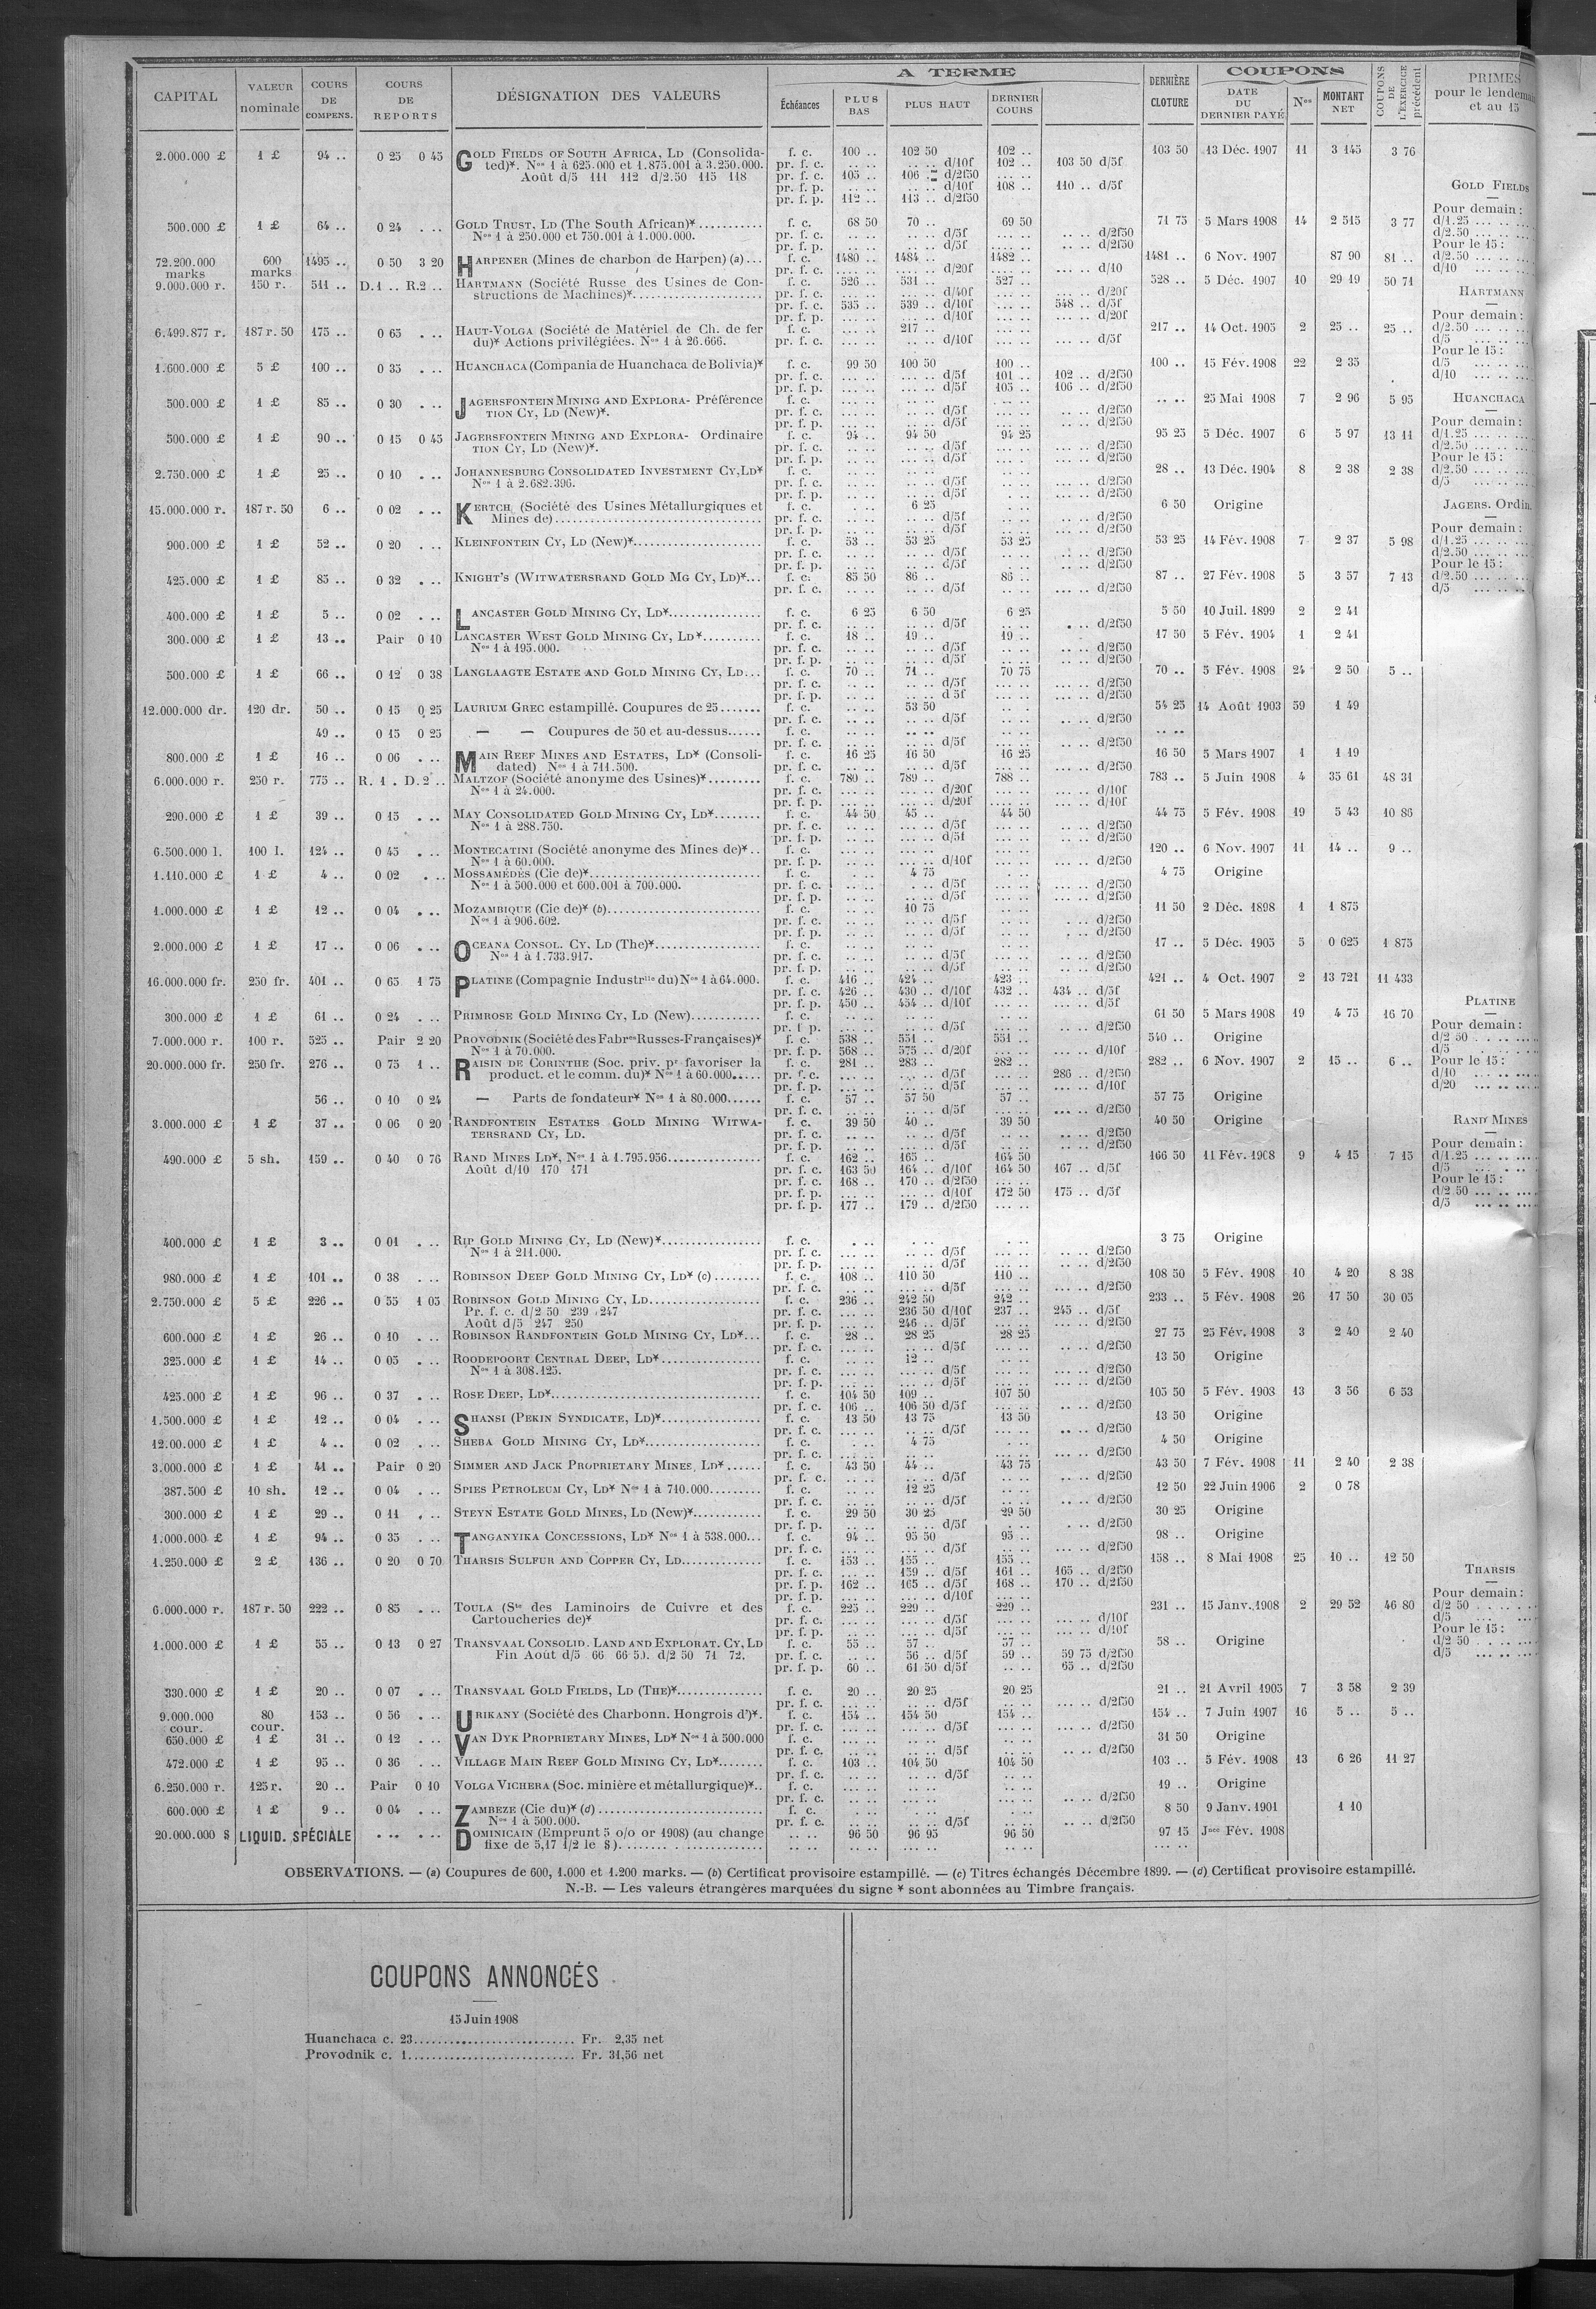 CAPITAL
VALEUR nominale
COURS DE COMPENS.
COURS DE REPORTS
DÉSIGNATION DES VALEURS
A TERME
Échéances
PLUS BAS
PLUS HAUT
DERNIER COURS
DERNIÈRE CLOTURE
COUPONS
DATE DU DERNIER PAYÉ
Nos
MONTANT NET
COUPONS DE L'EXERCICE précédent
PRIMES
pour le
et au 15
2.000.000 £ 1 £ 94 .. 0 25 0 45 GOLD FIELDS OF SOUTH AFRICA, LD (Consolida- f. c. 100 .. 102 50 102 .. 103 50 13 Déc. 1907 11 3 145 3 76
ted)*. Nos 1 à 625.000 et 1.875.001 à 3.250.000. pr. f. c. .. .. .. .. d/10f 102 .. 103 50 d/5f
Août d/5 111 112 d/2.50 115 118 pr. f. c. 105 .. 106 .. d/2f50 ... ..
pr. f. p. .. .. .. .. d/10f 108 .. 110 .. d/5f
pr. f. p. 112 .. 113 .. d/2f50
500.000 £ 1 £ 64 .. 0 24 . .. GOLD TRUST, LD (The South African)* f. c. 68 50 70 .. 69 50 71 75 5 Mars 1908 14 2 515 3 77
Nos 1 à 250.000 et 750.001 à 1.000.000. pr. f. c. .. .. .. .. d/5f .. .. d/2f50
pr. f. p. .. .. .. .. d/5f .. .. d/2f50
72.200.000 marks 600 marks 1495 .. 0 50 3 20 HARPENER (Mines de charbon de Harpen) (a)... f. c. 1480 .. 1484 .. 1482 .. 1481 .. 6 Nov. 1907 87 90 81 ..
pr. f. c. .... .. .... .. d/20f .... .. d/10
9.000.000 r. 150 r. 511 .. D.1 .. R.2 .. HARTMANN (Société Russe des Usines de Con- f. c. 526 .. 531 .. 527 .. 528 .. 5 Déc. 1907 10 29 19 50 71
structions de Machines)* pr. f. c. ... .. ... .. d/40f ... .. d/20f
pr. f. c. 535 .. 539 .. d/10f ... .. 548 .. d/5f
pr. f. p. ... .. ... .. d/10f ... .. d/20f
6.499.877 r. 187 r. 50 175 .. 0 65 . .. HAUT-VOLGA (Société de Matériel de Ch. de fer f. c. ... .. 217 .. 217 .. 14 Oct. 1905 2 25 .. 25 ..
du)* Actions privilégiées. Nos 1 à 26.666. pr. f. c. ... .. ... .. d/10f ... .. d/5f
1.600.000 £ 5 £ 100 .. 0 35 . .. HUANCHACA (Compania de Huanchaca de Bolivia)* f. c. 99 50 100 50 100 .. 100 .. 15 Fév. 1908 22 2 35
pr. f. c. ... .. ... .. d/5f 101 .. 102 .. d/2f50
pr. f. p. ... .. ... .. d/5f 105 .. 106 .. d/2f50
500.000 £ 1 £ 85 .. 0 30 . .. JAGERSFONTEIN MINING AND EXPLORA- Préférence f. c. .. .. .. .. 25 Mai 1908 7 2 96 5 95
TION CY, LD (New)*. pr. f. c. .. .. .. .. d/5f .. .. d/2f50
pr. f. p. .. .. .. .. d/5f .. .. d/2f50
500.000 £ 1 £ 90 .. 0 15 0 45 JAGERSFONTEIN MINING AND EXPLORA- Ordinaire f. c. 94 .. 94 50 94 25 95 25 5 Déc. 1907 6 5 97 13 11
TION CY, LD (New)*. pr. f. c. .. .. .. .. d/5f .. .. d/2f50
pr. f. p. .. .. .. .. d/5f .. .. d/2f50
2.750.000 £ 1 £ 25 .. 0 10 . .. JOHANNESBURG CONSOLIDATED INVESTMENT CY, LD* f. c. .. .. .. .. 28 .. 13 Déc. 1904 8 2 38 2 38
Nos 1 à 2.682.396. pr. f. c. .. .. .. .. d/5f .. .. d/2f50
pr. f. p. .. .. .. .. d/5f .. .. d/2f50
15.000.000 r. 187 r. 50 6 .. 0 02 . .. KERTCH (Société des Usines Métallurgiques et f. c. . .. 6 25 6 50 Origine
Mines de) pr. f. c. .. .. .. .. d/5f .. .. d/2f50
pr. f. p. .. .. .. .. d/5f .. .. d/2f50
900.000 £ 1 £ 52 .. 0 20 . .. KLEINFONTEIN CY, LD (New)* f. c. 53 .. 53 25 53 25 53 25 14 Fév. 1908 7 2 37 5 98
pr. f. c. .. .. .. .. d/5f .. .. d/2f50
pr. f. p. .. .. .. .. d/5f .. .. d/2f50
425.000 £ 1 £ 85 .. 0 32 . .. KNIGHT'S (WITWATERSRAND GOLD MG CY, LD)*... f. c. 85 50 86 .. 86 .. 87 .. 27 Fév. 1908 5 3 57 7 13
pr. f. c. .. .. .. .. d/5f ... .. d/2f50
400.000 £ 1 £ 5 .. 0 02 . .. LANCASTER GOLD MINING CY, LD* f. c. 6 25 6 50 6 25 5 50 10 Juil. 1899 2 2 41
pr. f. c. .. .. .. .. d/5f . .. d/2f50
300.000 £ 1 £ 13 .. Pair 0 10 LANCASTER WEST GOLD MINING CY, LD* f. c. 18 .. 19 .. 19 .. 17 50 5 Fév. 1904 1 2 41
Nos 1 à 195.000. pr. f. c. .. .. .. .. d/5f .. .. d/2f50
pr. f. p. .. .. .. .. d/5f .. .. d/2f50
500.000 £ 1 £ 66 .. 0 12 0 38 LANGLAAGTE ESTATE AND GOLD MINING CY, LD... f. c. 70 .. 71 .. 70 75 70 .. 5 Fév. 1908 24 2 50 5 ..
pr. f. c. .. .. .. .. d/5f ... .. d/2f50
pr. f. p. .. .. .. .. d 5f ... .. d/2f50
12.000.000 dr. 120 dr. 50 .. 0 15 0 25 LAURIUM GREC estampillé. Coupures de 25 f. c. .. .. 53 50 54 25 14 Août 1903 59 1 49
pr. f. c. .. .. .. .. d/5f ... .. d/2f50
49 .. 0 15 0 25 — — Coupures de 50 et au-dessus f. c. .. .. .. .. .. ..
pr. f. c. .. .. .. .. d/5f ... .. d/2f50
800.000 £ 1 £ 16 .. 0 06 . .. MAIN REEF MINES AND ESTATES, LD* (Consoli- f. c. 16 25 16 50 16 25 16 50 5 Mars 1907 1 1 19
dated) Nos 1 à 711.500. pr. f. c. .. .. .. .. d/5f ... .. d/2f50
6.000.000 r. 250 r. 775 .. R. 1 . D. 2 .. MALTZOF (Société anonyme des Usines)* f. c. 780 .. 789 .. 788 .. 783 .. 5 Juin 1908 4 35 61 48 31
Nos 1 à 24.000. pr. f. c. ... .. ... .. d/20f ... .. d/10f
pr. f. p. ... .. ... .. d/20f ... .. d/10f
290.000 £ 1 £ 39 .. 0 15 . .. MAY CONSOLIDATED GOLD MINING CY, LD* f. c. 44 50 45 .. 44 50 44 75 5 Fév. 1908 19 5 43 10 86
Nos 1 à 288.750. pr. f. c. .. .. .. .. d/5f .. .. d/2f50
pr. f. p. .. .. .. .. d/5f .. .. d/2f50
6.500.000 l. 100 l. 124 .. 0 45 . .. MONTECATINI (Société anonyme des Mines de)*.. f. c. ... .. ... .. 120 .. 6 Nov. 1907 11 14 .. 9 ..
Nos 1 à 60.000. pr. f. p. ... .. ... .. d/10f ... .. d/2f50
1.110.000 £ 1 £ 4 .. 0 02 . .. MOSSAMÉDÈS (Cie de)* f. c. . .. 4 75 4 75 Origine
Nos 1 à 500.000 et 600.001 à 700.000. pr. f. c. .. .. . .. d/5f ... .. d/2f50
pr. f. p. .. .. .. .. d/5f ... .. d/2f50
1.000.000 £ 1 £ 12 .. 0 04 . .. MOZAMBIQUE (Cie de)* (b) f. c. .. .. 10 75 11 50 2 Déc. 1898 1 1 875
Nos 1 à 906.602. pr. f. c. .. .. .. .. d/5f . .. d/2f50
pr. f. p. .. .. .. .. d/5f . .. d/2f50
2.000.000 £ 1 £ 17 .. 0 06 . .. OCEANA CONSOL. CY, LD (The)* f. c. .. .. .. .. 17 .. 5 Déc. 1905 5 0 625 1 875
Nos 1 à 1.733.917. pr. f. c. .. .. .. .. d/5f ... .. d/2f50
pr. f. p. .. .. .. .. d/5f ... .. d/2f50
16.000.000 fr. 250 fr. 401 .. 0 65 1 75 PLATINE (Compagnie Industrlle du) Nos 1 à 64.000. f. c. 416 .. 424 .. 423 .. 421 .. 4 Oct. 1907 2 13 721 11 433
pr. f. c. 426 .. 430 .. d/10f 432 .. 434 .. d/5f
pr. f. p. 450 .. 454 .. d/10f ... .. d/5f
300.000 £ 1 £ 61 .. 0 24 . .. PRIMROSE GOLD MINING CY, LD (New) f. c. .. .. .. .. 61 50 5 Mars 1908 19 4 75 16 70
pr. f p. ... .. ... .. d/5f ... .. d/2f50
7.000.000 r. 100 r. 525 .. Pair 2 20 PROVODNIK (Société des Fabres Russes-Françaises)* f. c. 538 .. 551 .. 551 .. 540 .. Origine
Nos 1 à 70.000. pr. f. p. 568 .. 575 .. d/20f ... .. d/10f
20.000.000 fr. 250 fr. 276 .. 0 75 1 .. RAISIN DE CORINTHE (Soc. priv. pr favoriser la f. c. 281 .. 283 .. 282 .. 282 .. 6 Nov. 1907 2 15 .. 6 ..
product. et le comm. du)* Nos 1 à 60.000 pr. f. c. ... .. ... .. d/5f ... .. 286 .. d/2f50
pr. f. p. ... .. ... .. d/5f ... .. d/10f
56 .. 0 10 0 24 — Parts de fondateur* Nos 1 à 80.000 f. c. 57 .. 57 50 57 .. 57 75 Origine
pr. f. c. .. .. .. .. d/5f ... .. d/2f50
3.000.000 £ 1 £ 37 .. 0 06 0 20 RANDFONTEIN ESTATES GOLD MINING WITWA- f. c. 39 50 40 .. 39 50 40 50 Origine
TERSRAND CY, LD. pr. f. c. .. .. .. .. d/5f .. .. d/2f50
pr. f. p. .. .. .. .. d/5f .. .. d/2f50
490.000 £ 5 sh. 159 .. 0 40 0 76 RAND MINES LD*, Nos 1 à 1.795.956 f. c. 162 .. 165 .. 164 50 166 50 11 Fév. 1908 9 4 15 7 15
Août d/10 170 171 pr. f. c. 163 50 164 .. d/10f 164 50 167 .. d/5f
pr. f. c. 168 .. 170 .. d/2f50 ... ..
pr. f. p. ... .. ... .. d/10f 172 50 175 .. d/5f
pr. f. p. 177 .. 179 .. d/2f50 ... ..
400.000 £ 1 £ 3 .. 0 01 . .. RIP GOLD MINING CY, LD (New)* f. c. . .. . .. 3 75 Origine
Nos 1 à 211.000. pr. f. c. ... .. ... .. d/5f .. .. d/2f50
pr. f. p. ... .. ... .. d/5f .. .. d/2f50
980.000 £ 1 £ 101 .. 0 38 . .. ROBINSON DEEP GOLD MINING CY, LD* (c) f. c. 108 .. 110 50 110 .. 108 50 5 Fév. 1908 10 4 20 8 38
pr. f. c. ... .. ... .. d/5f ... .. d/2f50
2.750.000 £ 5 £ 226 .. 0 55 1 05 ROBINSON GOLD MINING CY, LD f. c. 236 .. 242 50 242 .. 233 .. 5 Fév. 1908 26 17 50 30 05
Pr. f. c. d/2 50 239 247 pr. f. c. ... .. 236 50 d/10f 237 .. 245 .. d/5f
Août d/5 247 250 pr. f. p. ... .. 246 .. d/5f ... .. d/2f50
600.000 £ 1 £ 26 .. 0 10 . .. ROBINSON RANDFONTEIN GOLD MINING CY, LD*... f. c. 28 .. 28 25 28 25 27 75 25 Fév. 1908 3 2 40 2 40
pr. f. c. ... .. ... .. d/5f ... .. d/2f50
325.000 £ 1 £ 14 .. 0 05 . .. ROODEPOORT CENTRAL DEEP, LD* f. c. .. .. 12 .. 13 50 Origine
Nos 1 à 308.125. pr. f. c. ... .. ... .. d/5f ... .. d/2f50
pr. f. p. ... .. ... .. d/5f ... .. d/2f50
425.000 £ 1 £ 96 .. 0 37 . .. ROSE DEEP, LD* f. c. 104 50 109 .. 107 50 105 50 5 Fév. 1908 13 3 56 6 53
pr. f. c. 106 .. 106 50 d/5f ... .. d/2f50
1.500.000 £ 1 £ 12 .. 0 04 . .. SHANSI (PEKIN SYNDICATE, LD)* f. c. 13 50 13 75 13 50 13 50 Origine
pr. f. c. .. .. .. .. d/5f .. .. d/2f50
12.00.000 £ 1 £ 4 .. 0 02 . .. SHEBA GOLD MINING CY, LD* f. c. . .. 4 75 4 50 Origine
pr. f. c. .. .. .. .. ... .. d/2f50
3.000.000 £ 1 £ 41 .. Pair 0 20 SIMMER AND JACK PROPRIETARY MINES, LD* f. c. 43 50 44 .. 43 75 43 50 7 Fév. 1908 11 2 40 2 38
pr. f. c. .. .. .. .. d/5f .. .. d/2f50
387.500 £ 10 sh. 12 .. 0 04 . .. SPIES PETROLEUM CY, LD* Nos 1 à 710.000 f. c. .. .. 12 25 12 50 22 Juin 1906 2 0 78
pr. f. c. .. .. .. .. d/5f .. .. d/2f50
300.000 £ 1 £ 29 .. 0 11 . .. STEYN ESTATE GOLD MINES, LD (New)* f. c. 29 50 30 25 29 50 30 25 Origine
pr. f. p. .. .. .. .. d/5f . .. d/2f50
1.000.000 £ 1 £ 94 .. 0 35 . .. TANGANYIKA CONCESSIONS, LD* Nos 1 à 538.000... f. c. 94 .. 95 50 95 .. 98 .. Origine
pr. f. c. ... .. ... .. d/5f ... .. d/2f50
1.250.000 £ 2 £ 136 .. 0 20 0 70 THARSIS SULFUR AND COPPER CY, LD f. c. 153 .. 155 .. 155 .. 158 .. 8 Mai 1908 25 10 .. 12 50
pr. f. c. ... .. 159 .. d/5f 161 .. 165 .. d/2f50
pr. f. p. 162 .. 165 .. d/5f 168 .. 170 .. d/2f50
pr. f. p. ... .. ... .. d/10f ... ..
6.000.000 r. 187 r. 50 222 .. 0 85 . .. TOULA (Sté des Laminoirs de Cuivre et des f. c. 225 .. 229 .. 229 .. 231 .. 15 Janv. 1908 2 29 52 46 80
Cartoucheries de)* pr. f. c. ... .. ... .. d/5f ... .. d/10f
pr. f. p. ... .. ... .. d/5f ... .. d/10f
1.000.000 £ 1 £ 55 .. 0 13 0 27 TRANSVAAL CONSOLID. LAND AND EXPLORAT. CY, LD f. c. 55 .. 57 .. 57 .. 58 .. Origine
Fin Août d/5 66 66 50. d/2 50 71 72. pr. f. c. .. .. 56 .. d/5f 59 .. 59 75 d/2f50
pr. f. p. 60 .. 61 50 d/5f .. .. 65 .. d/2f50
330.000 £ 1 £ 20 .. 0 07 . .. TRANSVAAL GOLD FIELDS, LD (THE)* f. c. 20 .. 20 25 20 25 21 .. 21 Avril 1905 7 3 58 2 39
pr. f. c. .. .. .. .. d/5f ... .. d/2f50
9.000.000 cour. 80 cour. 153 .. 0 56 . .. URIKANY (Société des Charbonn. Hongrois d')*. f. c. 154 .. 154 50 154 .. 154 .. 7 Juin 1907 16 5 .. 5 ..
pr. f. c. ... .. ... .. d/5f ... .. d/2f50
650.000 £ 1 £ 31 .. 0 12 . .. VAN DYK PROPRIETARY MINES, LD* Nos 1 à 500.000 f. c. .. .. .. .. 31 50 Origine
pr. f. c. .. .. .. .. d/5f .. .. d/2f50
472.000 £ 1 £ 95 .. 0 36 . .. VILLAGE MAIN REEF GOLD MINING CY, LD* f. c. 103 .. 104 50 104 50 103 .. 5 Fév. 1908 13 6 26 11 27
pr. f. c. .. .. .. .. d/5f
6.250.000 r. 125 r. 20 .. Pair 0 10 VOLGA VICHERA (Soc. minière et métallurgique)*.. f. c. .. .. .. .. 19 .. Origine
pr. f. c. .. .. .. .. .. .. d/2f50
600.000 £ 1 £ 9 .. 0 04 . .. ZAMBEZE (Cie du)* (d) f. c. . .. .. .. 8 50 9 Janv. 1901 1 10
Nos 1 à 500.000. pr. f. c. .. .. .. .. d/5f .. .. d/2f50
20.000.000 $ LIQUID. SPÉCIALE . .. . .. DOMINICAIN (Emprunt 5 o/o or 1908) (au change .. .. 96 50 96 95 96 50 97 15 Jnce Fév. 1908
fixe de 5,17 1/2 le $) .. .. .. .. .. .. .. ..
GOLD FIELDS
Pour demain :
d/1.25 ... .. ...
d/2.50 ... .. ...
Pour le 15 :
d/2.50 ... .. ...
d/10 ... .. ...
HARTMANN
Pour demain :
d/2.50 ... .. ...
d/5 ... .. ...
Pour le 15 :
d/5 ... .. ...
d/10 ... .. ...
HUANCHACA
Pour demain :
d/1.25 ... .. ...
d/2.50 ... .. ...
Pour le 15 :
d/2.50 ... .. ...
d/5 ... .. ...
JAGERS. Ordin.
Pour demain :
d/1.25 ... .. ...
d/2.50 ... .. ...
Pour le 15 :
d/2.50 ... .. ...
d/5 ... .. ...
PLATINE
Pour demain :
d/2 50 ... .. ...
d/5 ... .. ...
Pour le 15 :
d/10 ... .. ...
d/20 ... .. ...
RAND MINES
Pour demain :
d/1.25 ... .. ...
d/5 ... .. ...
Pour le 15 :
d/2 50 ... .. ...
d/5 ... .. ...
THARSIS
Pour demain :
d/2 50 ... .. ...
d/5 ... .. ...
Pour le 15 :
d/2 50 ... .. ...
d/5 ... .. ...
OBSERVATIONS. — (a) Coupures de 600, 1.000 et 1.200 marks. — (b) Certificat provisoire estampillé. — (c) Titres échangés Décembre 1899. — (d) Certificat provisoire estampillé.
N.-B. — Les valeurs étrangères marquées du signe * sont abonnées au Timbre français.
COUPONS ANNONCÉS
15 Juin 1908
Huanchaca c. 23 Fr. 2,35 net
Provodnik c. 1 Fr. 31,56 net